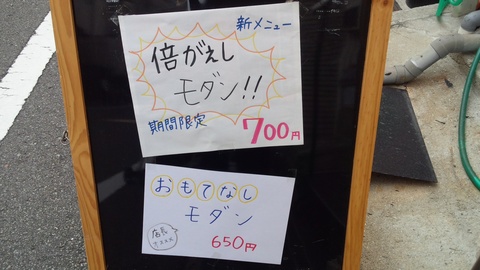 新メニュー
倍がえし
モダン!!
期間限定
700円
おもてなし
モダン
店長
650円